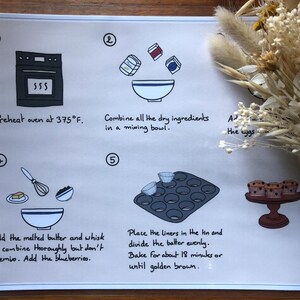 2
reheat oven at 375°F.
Combine all the dry ingredients
in a mixing bowl.
A
the eggs.
4
5
dd the melted butter and whisk
combine thoroughly but don't
ermix. Add the blueberries.
Place the liners in the tin and
divide the batter evenly.
Bake for about 18 minutes or
until golden brown.